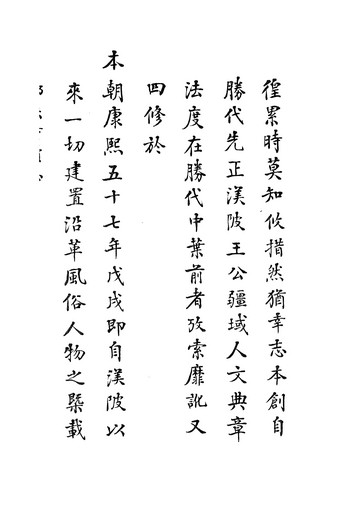 徨累時莫知攸措然猶幸志本創自
勝代先正渼陂王公疆域人文典章
法度在勝代中葉前者攷索靡訛又
四修於
本朝康熙五十七年戊戌即自渼陂以
來一切建置沿革風俗人物之槩載